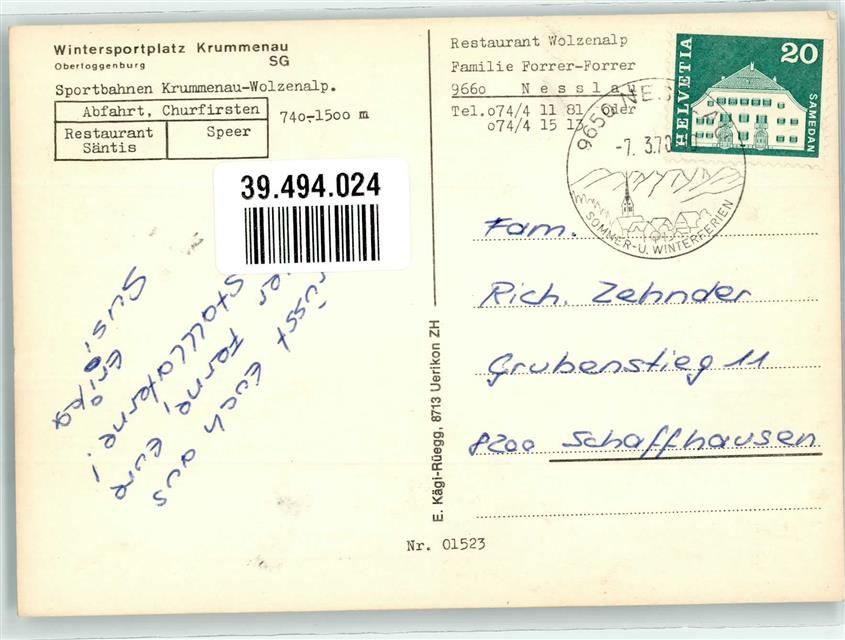 Wintersportplatz Krummenau
Obertoggenburg SG
Sportbahnen Krummenau-Wolzenalp.
Abfahrt, Churfirsten
Restaurant Säntis
Speer
740-1500 m
39.494.024
rüsst Euch aus
Ferne, Eure
Stalllaterne!
Susi Erika
E. Kägi-Rüegg, 8713 Uerikon ZH
Nr. 01523
Restaurant Wolzenalp
Familie Forrer-Forrer
9660 Nesslau
Tel.074/4 11 81 oder
074/4 15 13
HELVETIA
20
SAMEDAN
9650 NESSLAU
-7. 3.70
SOMMER-U. WINTERFERIEN
Fam.
Rich. Zehnder
Grubenstieg 11
8200 Schaffhausen